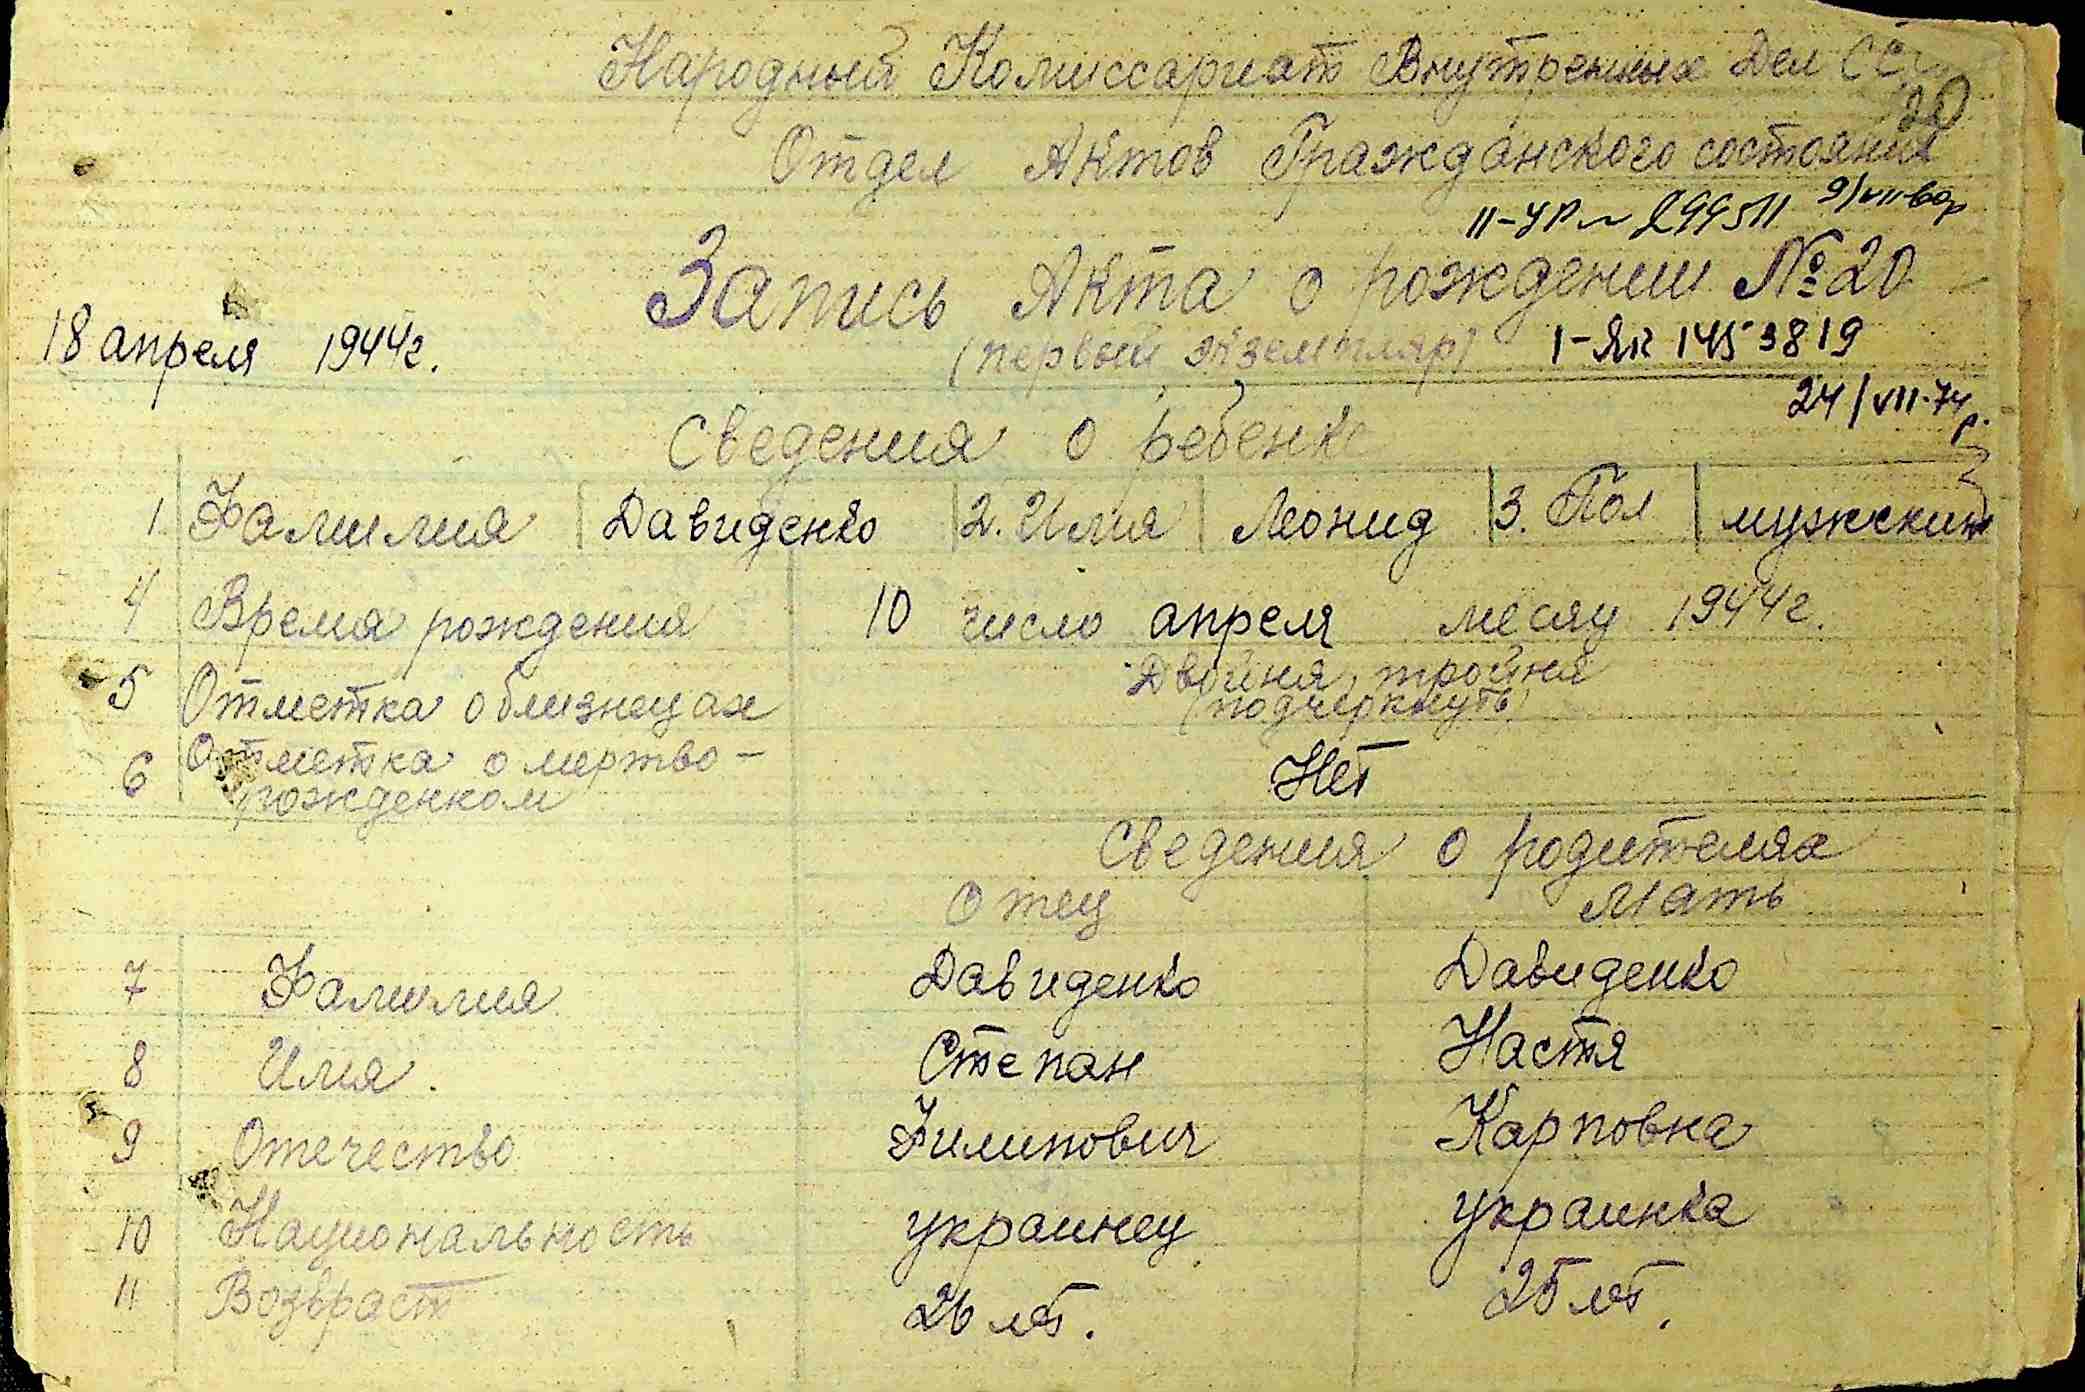 Народный Комиссариат Внутренних Дел СС
20
Отдел Актов Гражданского состояния
II-УР № 299511
Запись Акта о рождении №20
18 апреля 1944г.
(первый экземпляр) I-ЯК 1453819
24/VII-74г.
Сведения о ребенке
1. Фамилия Давиденко 2. Имя Леонид 3. Пол мужский
4 Время рождения 10 число апреля месяц 1944г.
5 Отметка о близнецах Двойня, тройня
(подчеркнуть)
6 Отметка о мертво-
рожденном Нет
Сведения о родителях
Отец Мать
7 Фамилия Давиденко Давиденко
8 Имя. Степан Настя
9 Отечество Филипович Карповна
10 Национальность украинец украинка
11 Возвраст 26 лет. 25 лет.